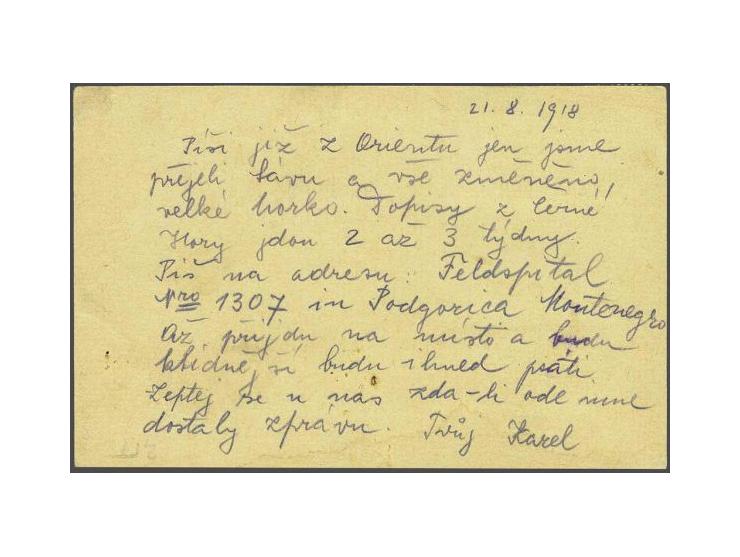 21. 8. 1918
Píši již z Orientu jen jsme
přijeli Sávu a vše změněno,
velké horko. Dopisy z Černé
Hory jdou 2 až 3 týdny.
Piš na adresu: Feldspital
Nro 1307 in Podgorica Montenegro
Až přijdu na místo a budu
klidnější budu ihned psáti
Zeptej se u nás zda-li ode mne
dostaly zprávu. Tvůj Karel